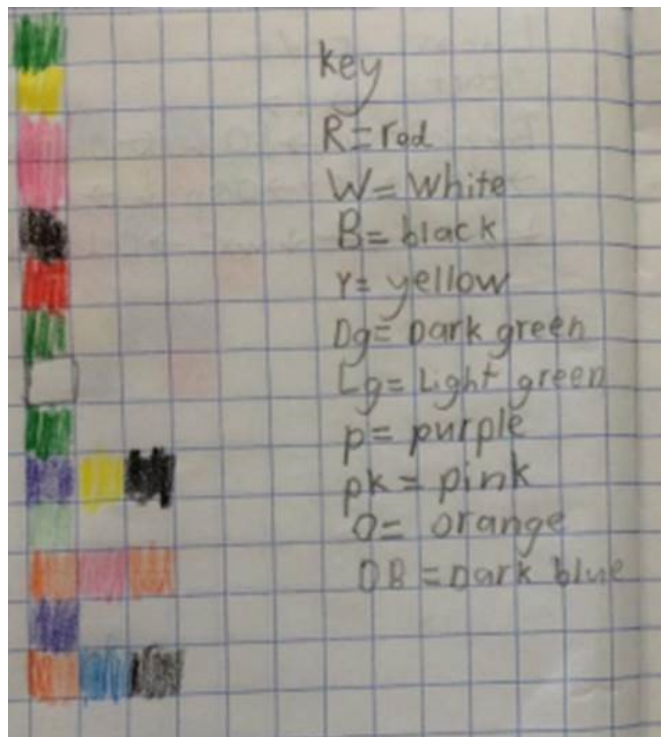 key
R=red
W=White
B=black
Y=yellow
Dg=Dark green
Lg=Light green
p=purple
pk=pink
O=orange
DB=Dark blue